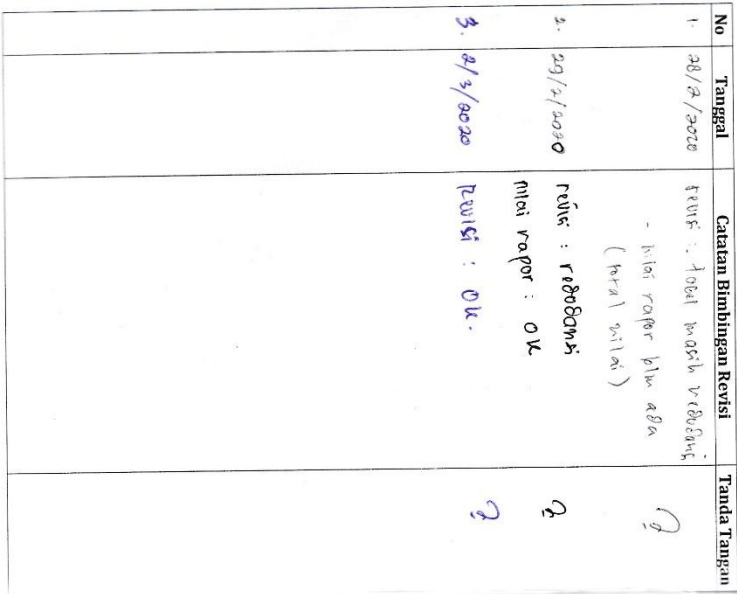 No Tanggal Catatan Bimbingan Revisi Tanda Tangan
1. 28/2/2020 revisi : tabel masih redudansi
- nilai rapor blm ada
(total nilai)
2. 29/2/2020 revisi : redodansi
nilai rapor : OK
3. 2/3/2020 Revisi : OK.